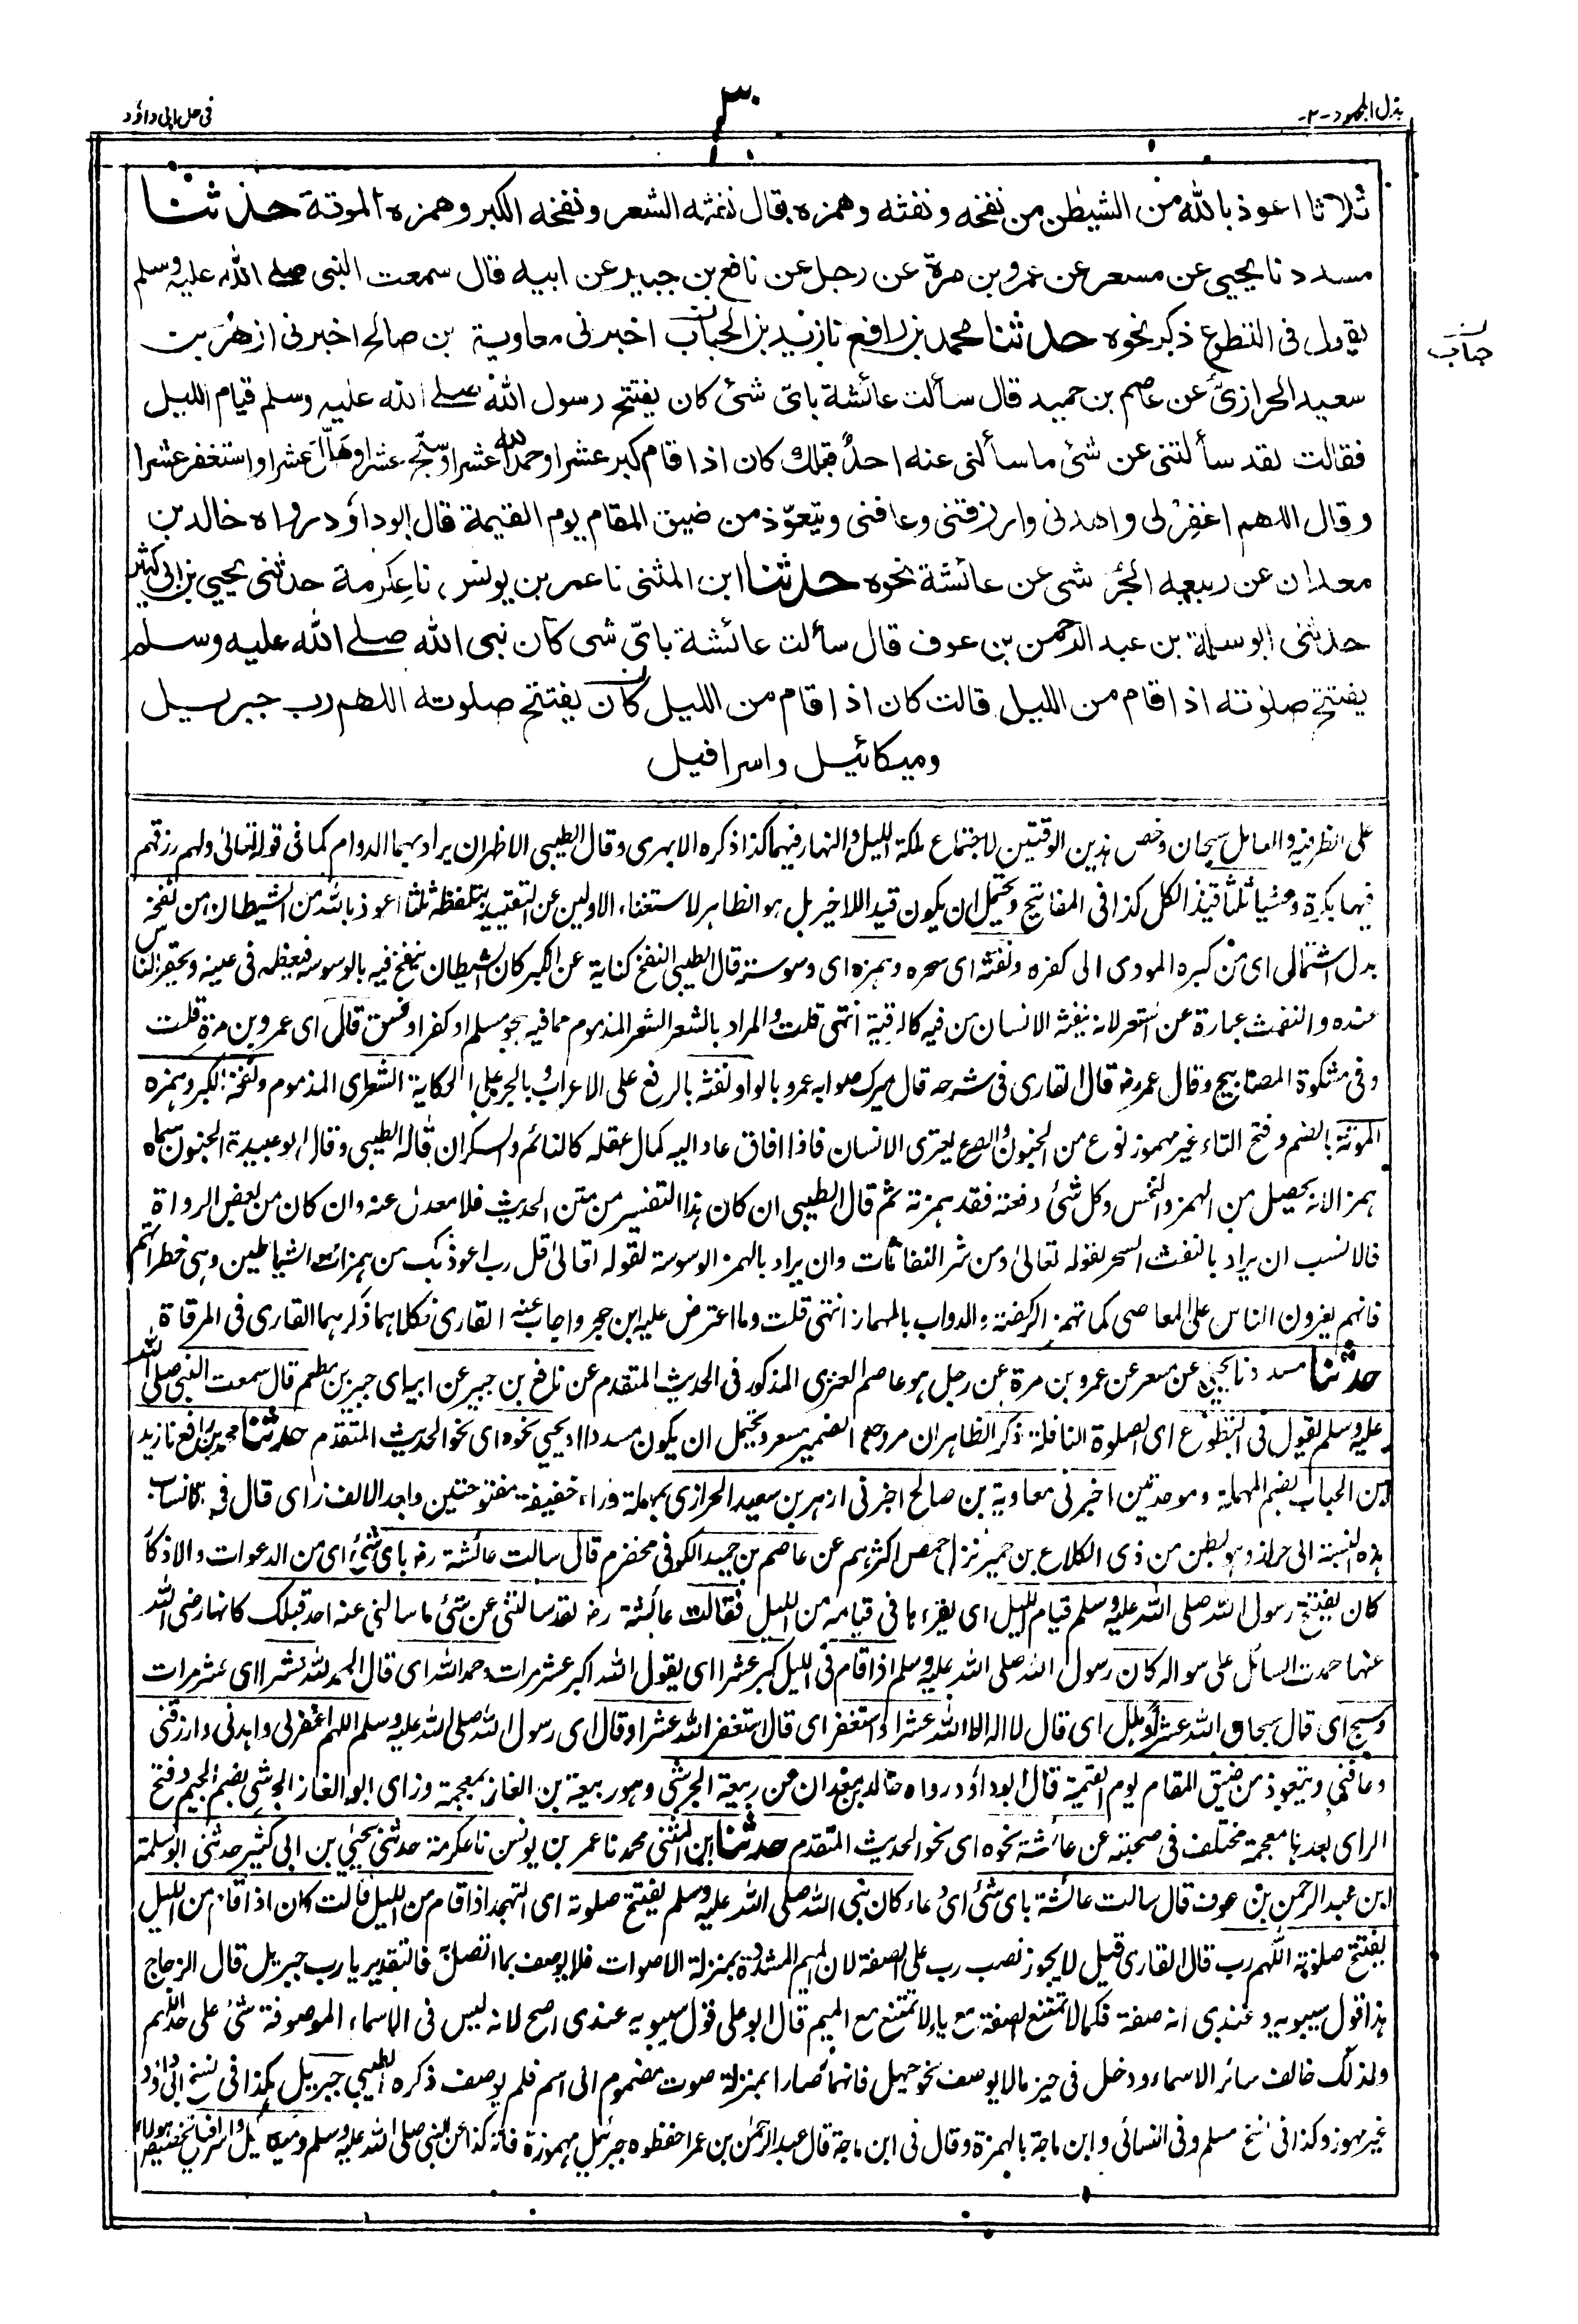 بذل المجهود -٢-
٣٠
فى حل ابى داؤد
ثلاثا اعوذ بالله من الشيطن من نفخه ونفثه وهمزه قال نفثه الشعر ونفخه الكبر وهمزه الموتة حدثنا
مسدد نا يحيى عن مسعر عن عمرو بن مرة عن رجل عن نافع بن جبير عن ابيه قال سمعت النبى صلے الله عليه وسلم
يقول فى التطوع ذكر نحوه حدثنا محمد بن رافع نا زيد بن الحباب اخبرنى معاوية بن صالح اخبرنى ازهر بن
حباب
سعيد الحرازىّ عن عاصم بن حميد قال سألت عائشة باىّ شئ كان يفتتح رسول الله صلے الله عليه وسلم قيام الليل
فقالت لقد سألتنى عن شئ ما سألنى عنه احدٌ قبلك كان اذا قام كبر عشرا وحمد الله عشرا وسبّح عشرا وهَلَّلَ عشرا واستغفر عشرا
وقال اللهم اغفِرْ لى واهدنى وارزقنى وعافنى ويتعوّذ من ضيق المقام يوم القيٰمة قال ابو داؤد رواه خالد بن
معدان عن ربيعة الجُرَشى عن عائشة نحوه حدثنا ابن المثنى نا عمر بن يونس نا عكرمة حدثنى يحيى بن ابى كثير
حدثنى ابو سلمة بن عبد الرحمن بن عوف قال سألت عائشة باىّ شئ كان نبى الله صلے الله عليه وسلم
يفتتح صلوته اذا قام من الليل قالت كان اذا قام من الليل كان يفتتح صلوته اللهم رب جبريل
وميكائيل واسرافيل
على الظرفية والعامل سبحان وخص هذين الوقتين لاجتماع ملٰئكة الليل والنهار فيهما كذا ذكره الابهرى وقال الطيبى الاظهر ان يراد بهما الدوام كما فى قوله تعالىٰ ولهم رزقهم
فيها بكرة وعشيا ثلثا قيد الكل كذا فى المفاتيح ويحتمل ان يكون قيد اللاخير بل هو الظاهر لاستغناء الاولين عن التقييد بتلفظه ثلثا اعوذ بالله من الشيطان من نفخه
بدل اشتمال اى من كبره المودى الى كفره ونفثه اى سحره وهمزه اى وسوسته قال الطيبى النفخ كناية عن الكبر كان الشيطان ينفخ فيه بالوسوسة فيعظمه فى عينه ويحقر الناس
عنده والنفث عبارة عن الشعر لانه ينفثه الانسان من فيه كالرقية انتهى قلت والمراد بالشعر الشعر المذموم مما فيه هجو مسلم او كفر او فسق قال اى عمرو بن مرة قلت
وفى مشكوة المصابيح وقال عمر رضـ قال القارى فى شرحه قال ميرك صوابه عمرو بالواو ونفثه بالرفع على الاعراب وبالجر على الحكاية الشعر اى المذموم ونفخه الكبر وهمزه
الموتة بالضم وفتح التاء غير مهموز نوع من الجنون والصرع يعترى الانسان فاذا افاق عاد اليه كمال عقله كالنائم والسكران قاله الطيبى وقال ابو عبيدة الجنون سماه
همزا لانه يحصل من الهمز والنخس وكل شئ دفعته فقد همزته ثم قال الطيبى ان كان هذا التفسير من متن الحديث فلا معدل عنه وان كان من بعض الرواة
فالانسب ان يراد بالنفث السحر لقوله تعالىٰ ومن شر النفاثات وان يراد بالهمز الوسوسة لقوله تعالىٰ قل رب اعوذ بك من همزات الشياطين وهى خطراتهم
فانهم يغرون الناس على المعاصى كما تهمز الركضة والدواب بالمهماز انتهى قلت وما اعترض عليه ابن حجر واجاب عنه القارى فكلاهما ذكرهما القارى فى المرقاة
حدثنا مسدد نا يحيى عن مسعر عن عمرو بن مرة عن رجل هو عاصم العنزى المذكور فى الحديث المتقدم عن نافع بن جبير عن ابيه اى جبير بن مطعم قال سمعت النبى صلى الله
عليه وسلم يقول فى التطوع اى الصلوة النافلة ذكر الظاهر ان مرجع الضمير مسعر ويحتمل ان يكون مسددا او يحيى نحوه اى نحو الحديث المتقدم حدثنا محمد بن رافع نا زيد
بن الحباب بضم المهملة وموحدتين اخبرنى معاوية بن صالح اخبرنى ازهر بن سعيد الحرازى بمهملة وراء خفيفة مفتوحتين وبعد الالف زاى قال فى الانساب
هذه النسبة الى حراز وهو بطن من ذى الكلاع بن حمير نزل حمص اكثرهم عن عاصم بن حميد الكوفى مخضرم قال سالت عائشة رضـ باى شئ اى من الدعوات والاذكار
كان يفتتح رسول الله صلى الله عليه وسلم قيام الليل اى يقرء بها فى قيامه من الليل فقالت عائشة رضـ لقد سالتنى عن شئ ما سالنى عنه احد قبلك كانها رضى الله
عنها حمدت السائل على سواله كان رسول الله صلى الله عليه وسلم اذا قام فى الليل كبر عشرا اى يقول الله اكبر عشر مرات وحمد الله اى قال الحمد لله عشرا اى عشر مرات
وسبح اى قال سبحان الله عشرا وهلل اى قال لا اله الا الله عشرا واستغفر اى قال استغفر الله عشرا وقال اى رسول الله صلى الله عليه وسلم اللهم اغفر لى واهدنى وارزقنى
وعافنى ويتعوذ من ضيق المقام يوم القيٰمة قال ابو داؤد رواه خالد بن معدان عن ربيعة الجرشى وهو ربيعة بن الغاز بمعجمة وزاى ابو الغاز الجرشى بضم الجيم وفتح
الراى بعدها معجمة مختلف فى صحبته عن عائشة نحوه اى نحو الحديث المتقدم حدثنا ابن المثنى محمد نا عمر بن يونس نا عكرمة حدثنى يحيى بن ابى كثير حدثنى ابو سلمة
ابن عبد الرحمن بن عوف قال سالت عائشة باى شئ اى دعاء كان نبى الله صلى الله عليه وسلم يفتتح صلوته اى التهجد اذا قام من الليل قالت كان اذا قام من الليل
يفتتح صلوته اللهم رب قال القارى قيل لا يجوز نصب رب على الصفة لان الميم المشددة بمنزلة الاصوات فلا يوصف بما اتصل به فالتقدير يا رب جبريل قال الزجاج
هذا قول سيبويه وعندى انه صفة فكما لا تمتنع الصفة مع يا لا تمتنع مع الميم قال ابو على قول سيبويه عندى اصح لانه ليس فى الاسماء الموصوفة شئ على حد اللهم
ولذلك خالف سائر الاسماء ودخل فى حيز ما لا يوصف نحو حيهل فانهما صارا بمنزلة صوت مضموم الى اسم فلم يوصف ذكره الطيبى جبريل هكذا فى نسخ ابى داؤد
غير مهموز وكذا فى نسخ مسلم وفى النسائى وابن ماجة بالهمزة وقال فى ابن ماجة قال عبد الرحمٰن بن عمر احفظوه جبرئيل مهموزة فانه كذا عن النبى صلى الله عليه وسلم وميكائيل واسرافيل تخصيص هولاء